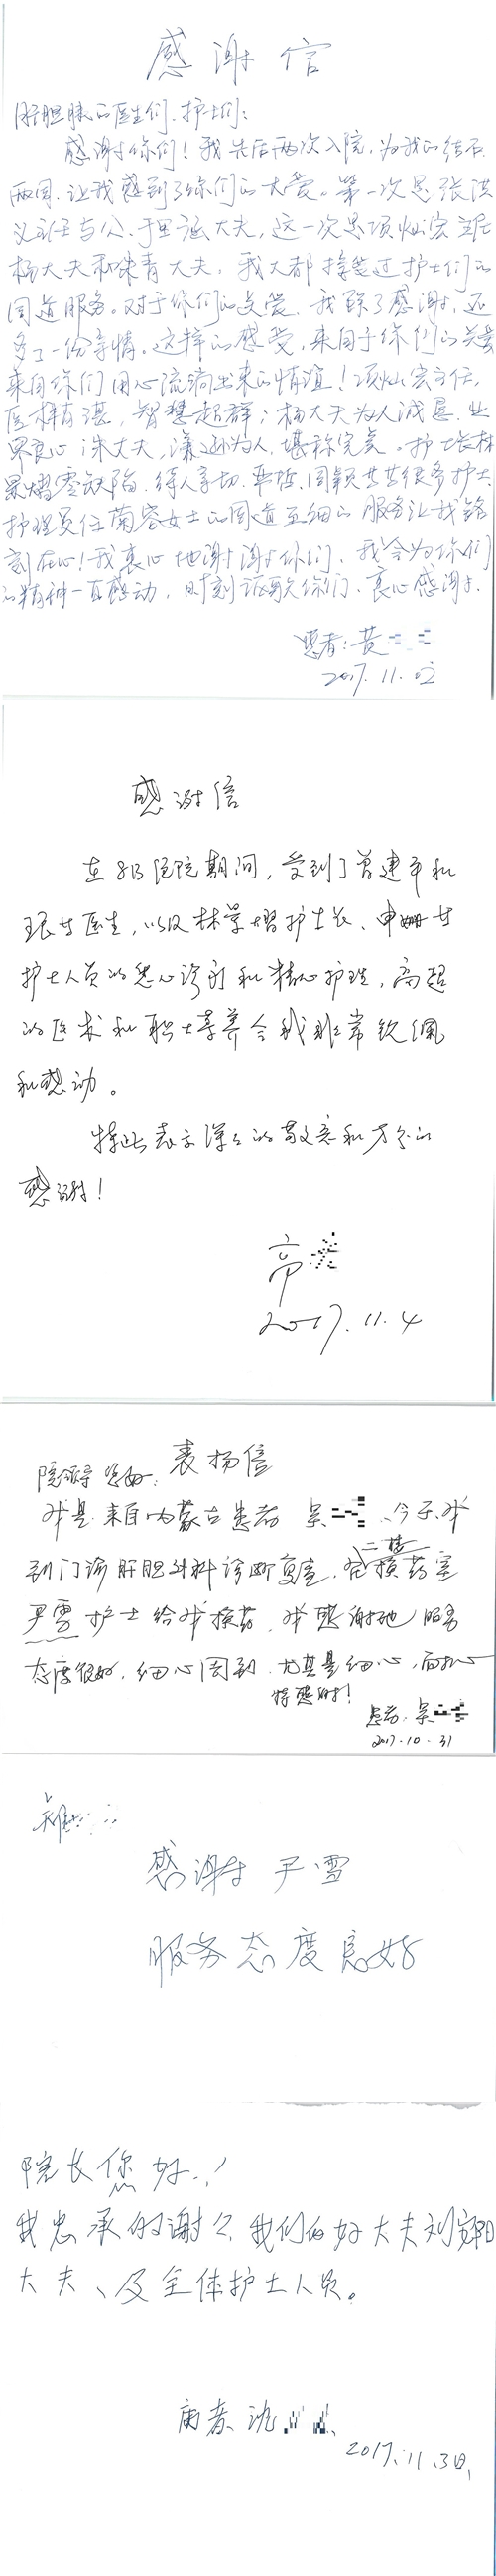 感谢信
肝胆胰的医生们、护士们：
感谢你们！我先后两次入院，为我的结石
两周，让我感到了你们的大爱。第一次是张洪
义主任与公、于里涵大夫，这一次是项灿宏主任
杨大夫和朱青大夫，我大都接受过护士们的
周道服务。对于你们的关爱，我除了感谢，还
多了一份亲情，这样的感受，来自于你们的关爱
来自你们用心流淌出来的情谊！项灿宏主任，
医术精湛，智慧超群；杨大夫为人诚恳，业
界良心；朱大夫，谦逊为人，堪称完美。护士长林
景熠零缺陷，待人亲切，单哲、周颖苗苗很多护士
护理员任菊容女士的周道五细的服务让我铭
刻在心！我衷心地谢谢你们，我会为你们
的精神一直感动，时刻讴歌你们，衷心感谢。
患者：黄
2017.11.02
感谢信
在813医院期间，受到了曾建平和
医生，以及林景熠护士长、申姗
护士人员的悉心诊疗和精心护理，高超
的医术和职士素养令我非常钦佩
和感动。
特此表示深深的敬意和万分的
感谢！
2017.11.4
表扬信
院领导您好：
我是来自内蒙古患者 吴 今天我
到门诊肝胆外科诊断复查，在二楼换药室
尹雪护士给我换药，我感谢她 服务
态度很好，细心周到，尤其是细心，而热心
特感谢！
患者：吴
2017.10.31
感谢 尹雪
服务态度良好
院长您好！
我忠承的谢谢我们的好大夫刘鄂阳
大夫、及全体护士人员。
病者 沈
2017.11.3日